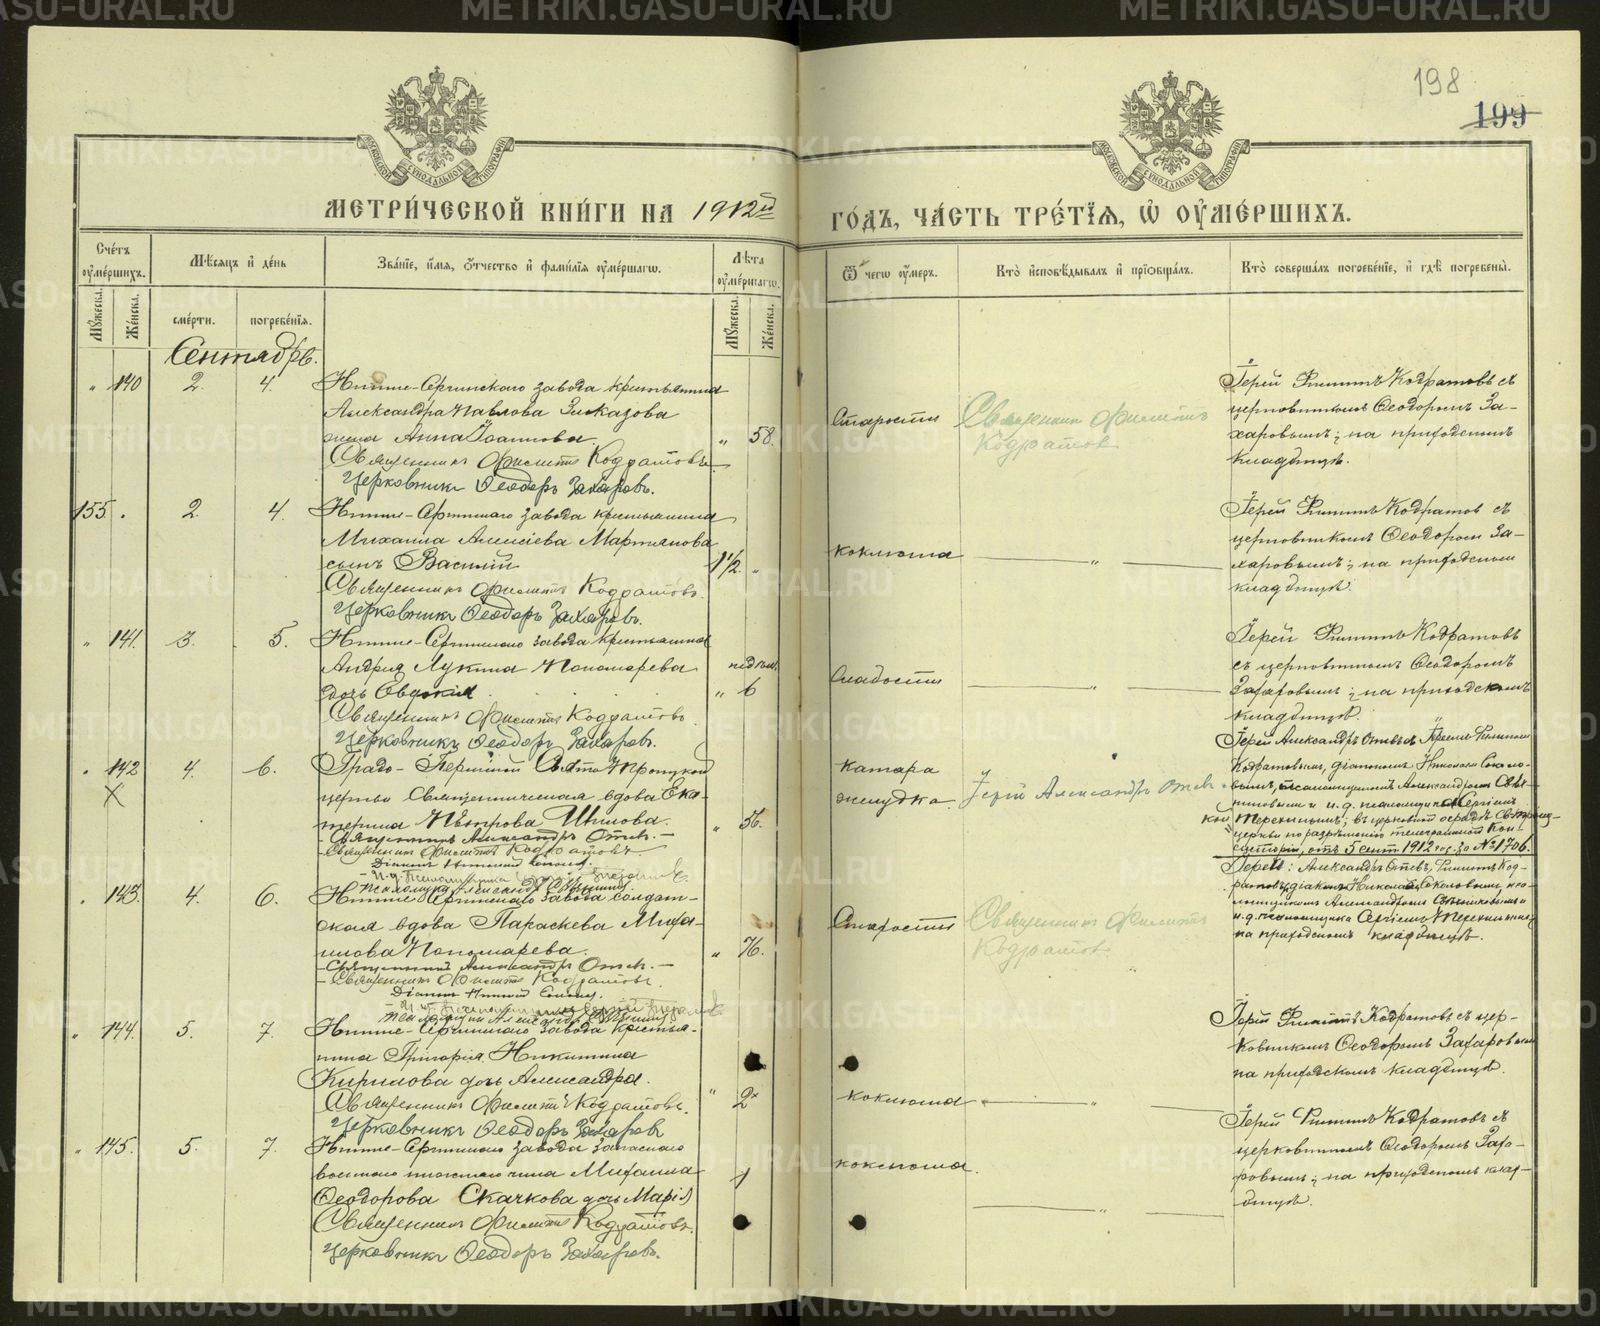 198
199
МЕТРИ́ЧЕСКОЙ КНИ́ГИ НА 1912й ГО́ДЪ, ЧА́СТЬ ТРЕ́ТІѦ, Ѡ ОУМЕ́РШИХЪ.
Сче́тъ оуме́ршихъ.
Мѣ́сѧцъ и де́нь
Зва́нїе, и́мѧ, о́тчество и фами́лїѧ оуме́ршагѡ.
Лѣ́та оуме́ршагѡ.
Ѿ чегѡ̀ оу́меръ.
Кто̀ исповѣ́дывалъ и прїѡбща́лъ.
Кто̀ соверша́лъ погребе́нїе, и гдѣ̀ погребены̀.
Мꙋжеска. Же́нска. сме́рти. погребе́нїѧ. Мꙋжеска. Же́нска.
Сентябрь.
„ 140 2. 4. Нижне-Сергинскаго завода крестьянина
Александра Павлова Заказова
жена Анна Іоаннова. „ 58.
Священникъ Филиппъ Кодратовъ.
Церковникъ Ѳеодоръ Захаровъ.
Старости
Священникъ Филиппъ
Кодратов
Іерей Филиппъ Кодратовъ съ
церковникомъ Ѳеодоромъ За-
харовымъ; на приходскомъ
кладбищѣ.
155. „ 2. 4. Нижне-Сергинскаго завода крестьянина
Михаила Алексіева Мартьянова
сынъ Василій 1 1/2. „
Священникъ Филиппъ Кодратовъ.
Церковникъ Ѳеодоръ Захаровъ.
коклюша — „ —
Іерей Филиппъ Кодратов съ
церковникомъ Ѳеодоромъ За-
харовымъ; на приходскомъ
кладбищѣ.
„ 141. 3. 5. Нижне-Сергинскаго завода крестьянина
Андрея Лукина Пономарева недѣль
дочь Евдокия „ 6
Священникъ Филиппъ Кодратовъ.
Церковникъ Ѳеодоръ Захаровъ.
Слабости — „ —
Іерей Филиппъ Кодратовъ
съ церковникомъ Ѳеодоромъ
Захаровымъ; на приходскомъ
кладбищѣ.
„ 142 4. 6. Градо-Пермской Свято Троицкой
X
церкви Священническая вдова Ека-
терина Петрова Шилова. „ 56.
Священникъ Александръ
Священникъ Филиппъ Кодратовъ.
катара
желудка.
Іерей Александръ
Іерей Александръ
Кодратовымъ, діакономъ Николаемъ
псаломщикомъ Александромъ
и и. д. псаломщика Сергіемъ
въ церковной оградѣ
церкви по разрѣшенію телеграммой Кон-
систоріи, отъ 5 сент 1912 год за № 1706.
„ 143. 4. 6. Нижне-Сергинскаго завода солдат-
ская вдова Параскева Миха-
илова Пономарева. „ 76.
Священникъ Александръ
Священникъ Филиппъ Кодратовъ.
Старости
Священникъ Филиппъ
Кодратов
Іереи: Александръ Филиппъ Код-
ратовъ, діаконъ Николай Соколовымъ, пса-
ломщикомъ Александромъ
и. д. псаломщика Сергіемъ
на приходскомъ кладбищѣ.
„ 144. 5. 7. Нижне-Сергинскаго завода крестья-
нина Григорія Никитина
Кирилова дочь Александра. „ 2
Священникъ Филиппъ Кодратовъ.
Церковникъ Ѳеодоръ Захаров
коклюша — „ —
Іерей Филиппъ Кодратовъ съ цер-
ковникомъ Ѳеодоромъ Захаровым
на приходскомъ кладбищѣ.
„ 145. 5. 7. Нижне-Сергинскаго завода запаснаго
военнаго чина Михаила
Ѳеодорова Скачкова дочь Марія 1
Священникъ Филиппъ Кодратовъ.
Церковникъ Ѳеодоръ Захаровъ.
коклюша. — „ —
Іерей Филиппъ Кодратовъ съ
церковникомъ Ѳеодоромъ Заха-
ровымъ; на приходскомъ клад-
бищѣ.
METRIKI.GASO-URAL.RU